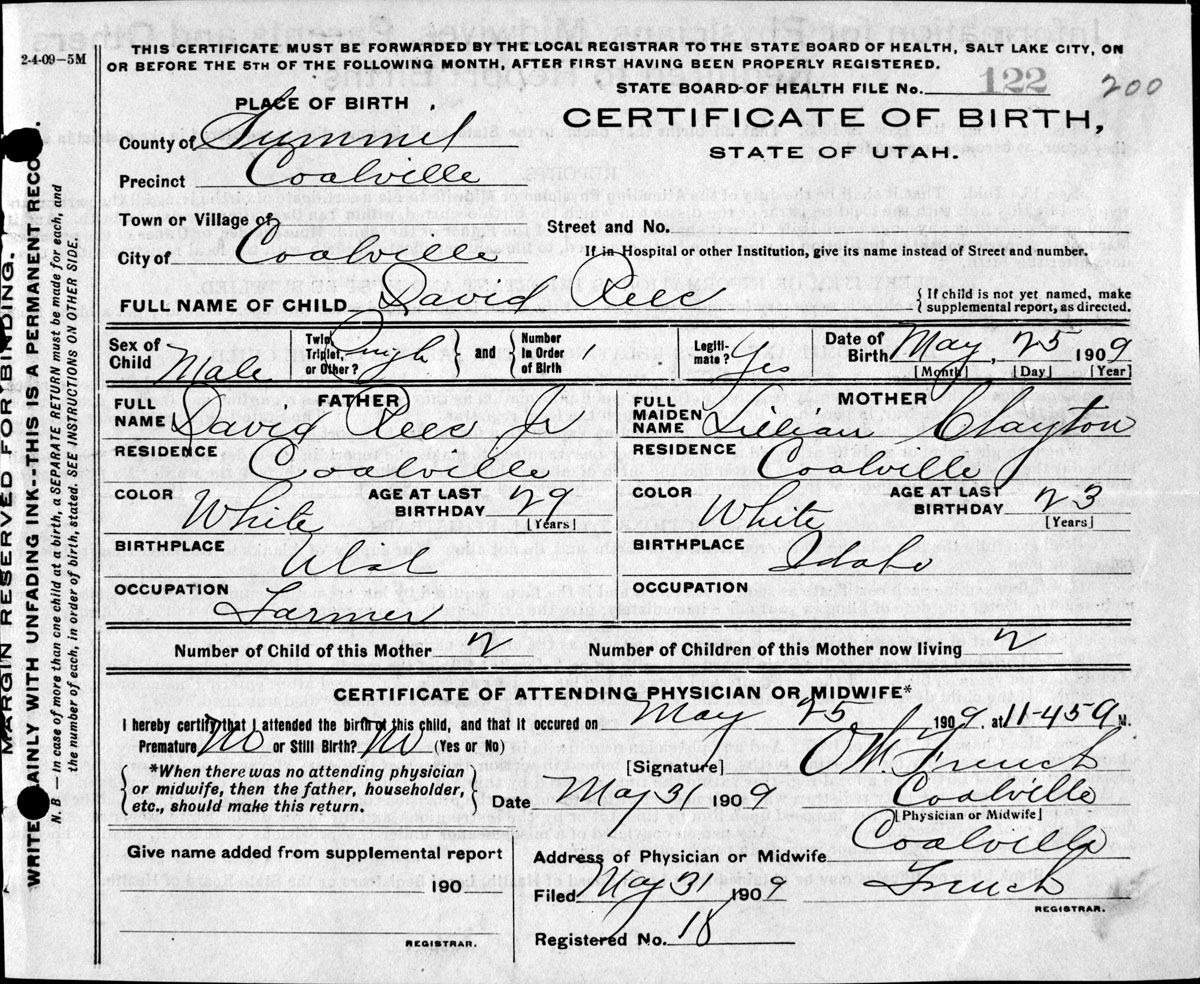 2-4-09–5M
THIS CERTIFICATE MUST BE FORWARDED BY THE LOCAL REGISTRAR TO THE STATE BOARD OF HEALTH, SALT LAKE CITY, ON
OR BEFORE THE 5TH OF THE FOLLOWING MONTH, AFTER FIRST HAVING BEEN PROPERLY REGISTERED.
STATE BOARD OF HEALTH FILE No. 122 200
PLACE OF BIRTH
CERTIFICATE OF BIRTH,
STATE OF UTAH.
County of Summit
Precinct Coalville
Town or Village of
Street and No.
City of Coalville
If in Hospital or other Institution, give its name instead of Street and number.
FULL NAME OF CHILD David Rees
{ If child is not yet named, make
supplemental report, as directed.
Sex of Child Male
Twin, Triplet, or Other? } and { Number in Order of Birth 1
Legitimate? Yes
Date of Birth May, 25 1909
[Month] [Day] [Year]
FATHER
FULL NAME David Rees Jr
RESIDENCE Coalville
COLOR White AGE AT LAST BIRTHDAY 29 [Years]
BIRTHPLACE Utah
OCCUPATION Farmer
MOTHER
FULL MAIDEN NAME Lillian Clayton
RESIDENCE Coalville
COLOR White AGE AT LAST BIRTHDAY 23 [Years]
BIRTHPLACE Idaho
OCCUPATION
Number of Child of this Mother 2 Number of Children of this Mother now living 2
CERTIFICATE OF ATTENDING PHYSICIAN OR MIDWIFE*
I hereby certify that I attended the birth of this child, and that it occured on May 25 1909, at 11-45 M.
Premature No or Still Birth? No (Yes or No)
[Signature] French
{ *When there was no attending physician
or midwife, then the father, householder,
etc., should make this return. }
Date May 31 1909
Coalville
[Physician or Midwife]
Give name added from supplemental report
190
REGISTRAR.
Address of Physician or Midwife Coalville
Filed May 31 1909 French
REGISTRAR.
Registered No. 18
MARGIN RESERVED FOR BINDING.
WRITE PLAINLY WITH UNFADING INK--THIS IS A PERMANENT RECO
N. B. — In case of more than one child at birth, a SEPARATE RETURN must be made for each, and
the number of each, in order of birth, stated. SEE INSTRUCTIONS ON OTHER SIDE.